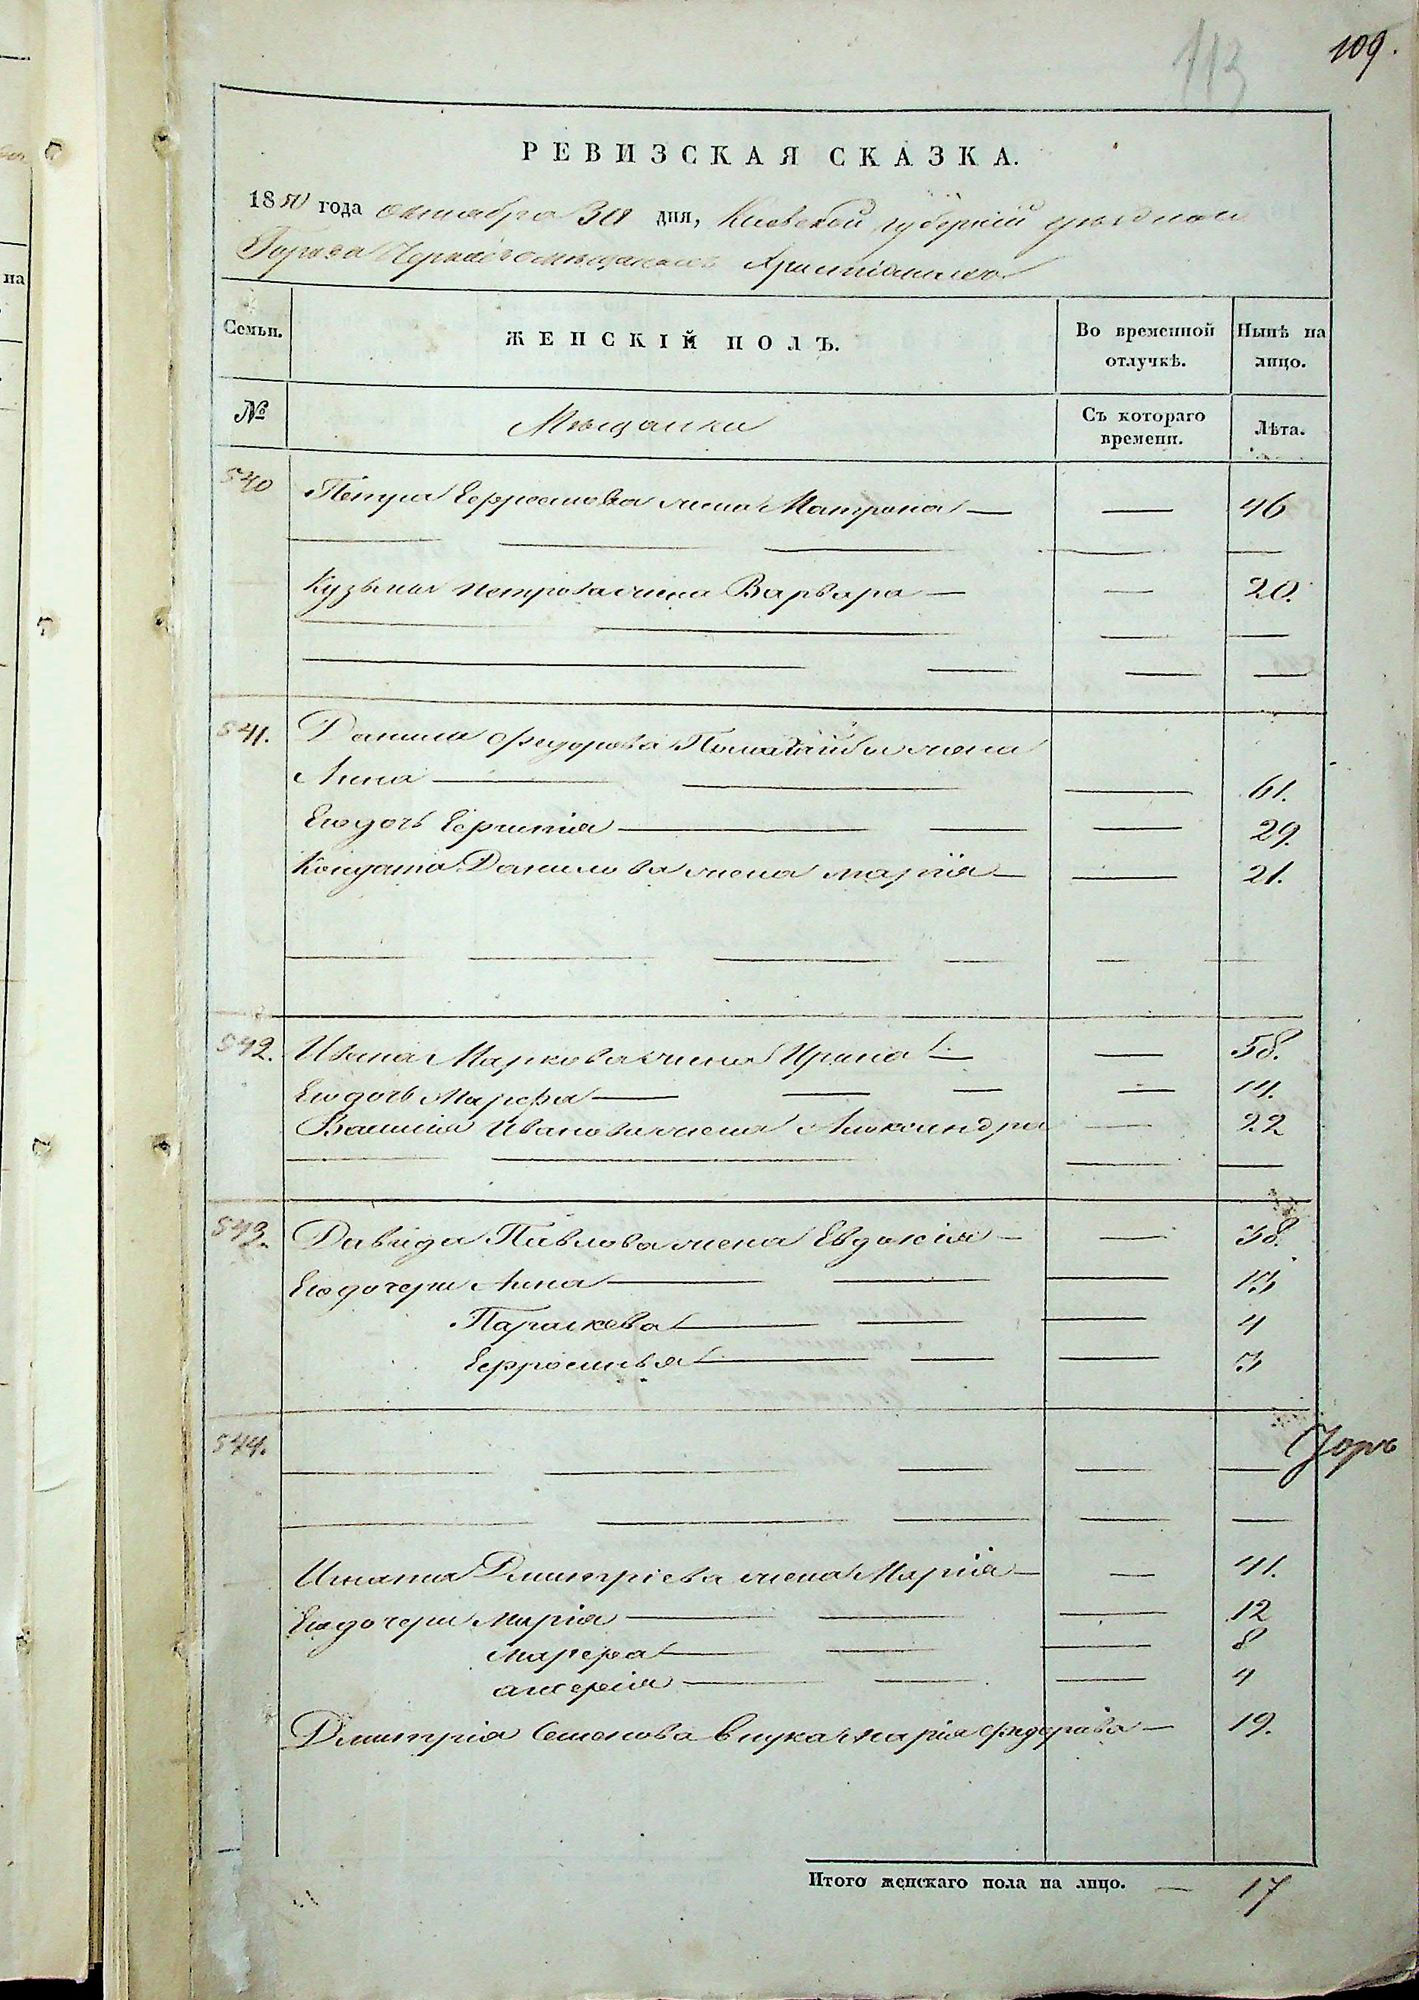 113
109.
РЕВИЗСКАЯ СКАЗКА.
1850 года октября 30 дня, Киевской губерніи уездного
Города Черкасъ мѣщанъ Христіанъ
на
Семьи.
ЖЕНСКІЙ ПОЛЪ.
Во временной отлучкѣ.
Нынѣ на лицо.
№
Мѣщанки
Съ котораго времени.
Лѣта.
540 Петра Ефросимова жена Матрона — — 46
Кузьмы Петрова жена Варвара — — 20.
541. Данила Федорова жена
Анна — — 61.
Его дочь — — 29.
Кондрата Данилова жена Марія — — 21.
542. Ивана Маркова жена Ирина — — 58.
Его дочь Марфа — — 14.
Василия Иванова жена Александра — 22
543. Давида Павлова жена Евдокія — — 38.
Его дочери Анна — — 13
Параскева — — 4
Ефросинья — — 3
544.
Игната Дмитріева жена Марія — — 41.
Его дочери Марія — — 12
Марфа — — 8
— — 4
Дмитрія Семенова внука Марія Федорова — 19.
Итого женскаго пола на лицо. — 17